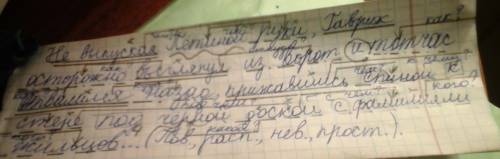 Не выпуская Петиной руки, Гаврик как?
осторожно выглянул из ворот и тотчас
отвалился назад, прижавшись спиной к
стене под чёрной доской с фамилиями кого?
жильцов... (Пов, расп., нев., прост.).